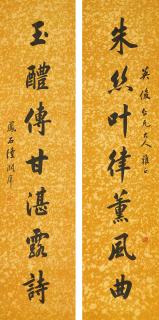 英俊仁兄大人雅正
朱絲叶律薰風曲
玉醴傳甘湛露詩
鳳石陸潤庠